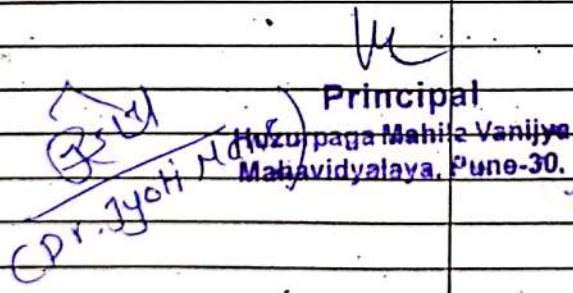 Principal
Huzurpaga Mahila Vanijya
Mahavidyalaya, Pune-30.
(Dr. Jyoti